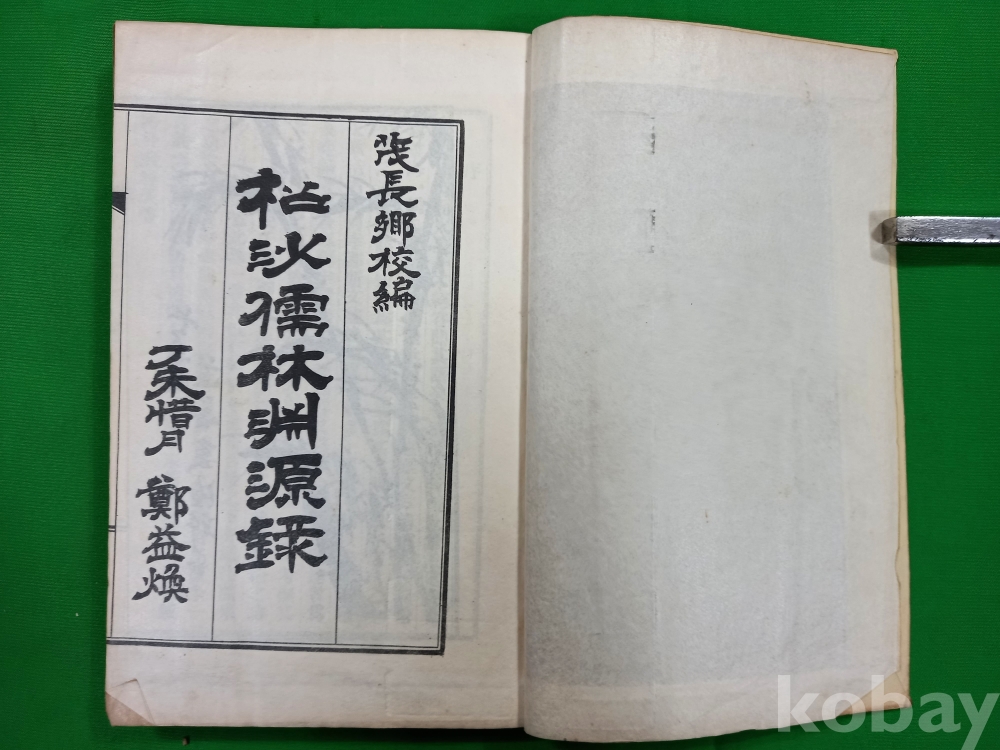 茂長鄉校編
松沙儒林淵源錄
丁未惜月 鄭益煥
kobay